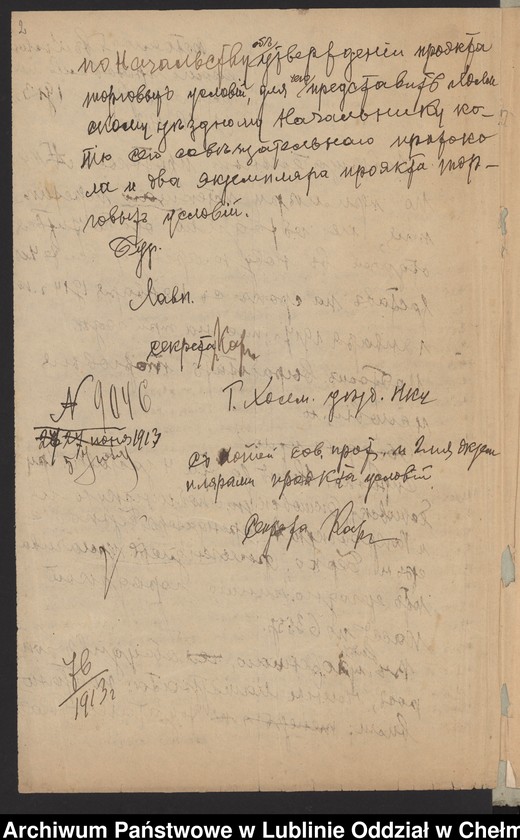 2
по Начальству объ утвержденіи проэкта
торговыхъ условій, для чего представить Холм
скому уѣздному Начальнику ко-
пію сего совѣщательнаго протоко
ла и два экземпляра проэкта тор-
говыхъ условій.
Бур.
Лавн.
Секрета
N 9046
іюня 1913
5 іюля
Г. Холм. уѣзд. Нку
съ копіей сов. прот. и 2-мя экзем
плярами проэкта условій
Секрета
76
1913 г
Archiwum Państwowe w Lublinie Oddział w Chełm